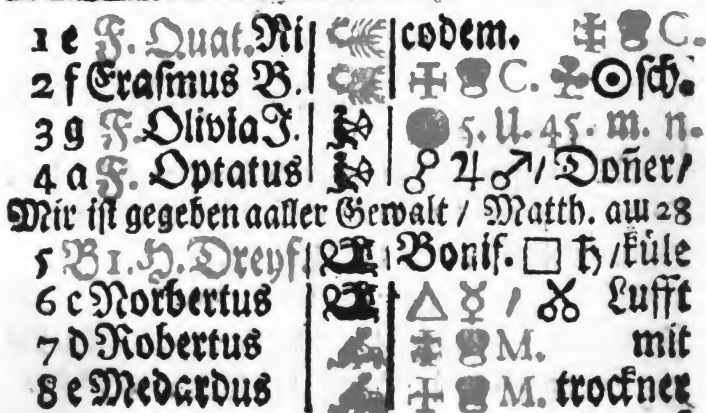 1 e F. Quat. Ni codem. C.
2 f Erasmus B. C. ☉ sch.
3 g F. Olivia J. 5. U. 45. m. n.
4 a F. Optatus ☍ ♃ ♂ / Doñer /
Mir ist gegeben aaller Gewalt / Matth. am 28
5 B 1. H. Dreyf. Bonif. □ ♄ / küle
6 c Norbertus △ ☿ / Lufft
7 d Robertus M. mit
8 e Medardus M. trockner